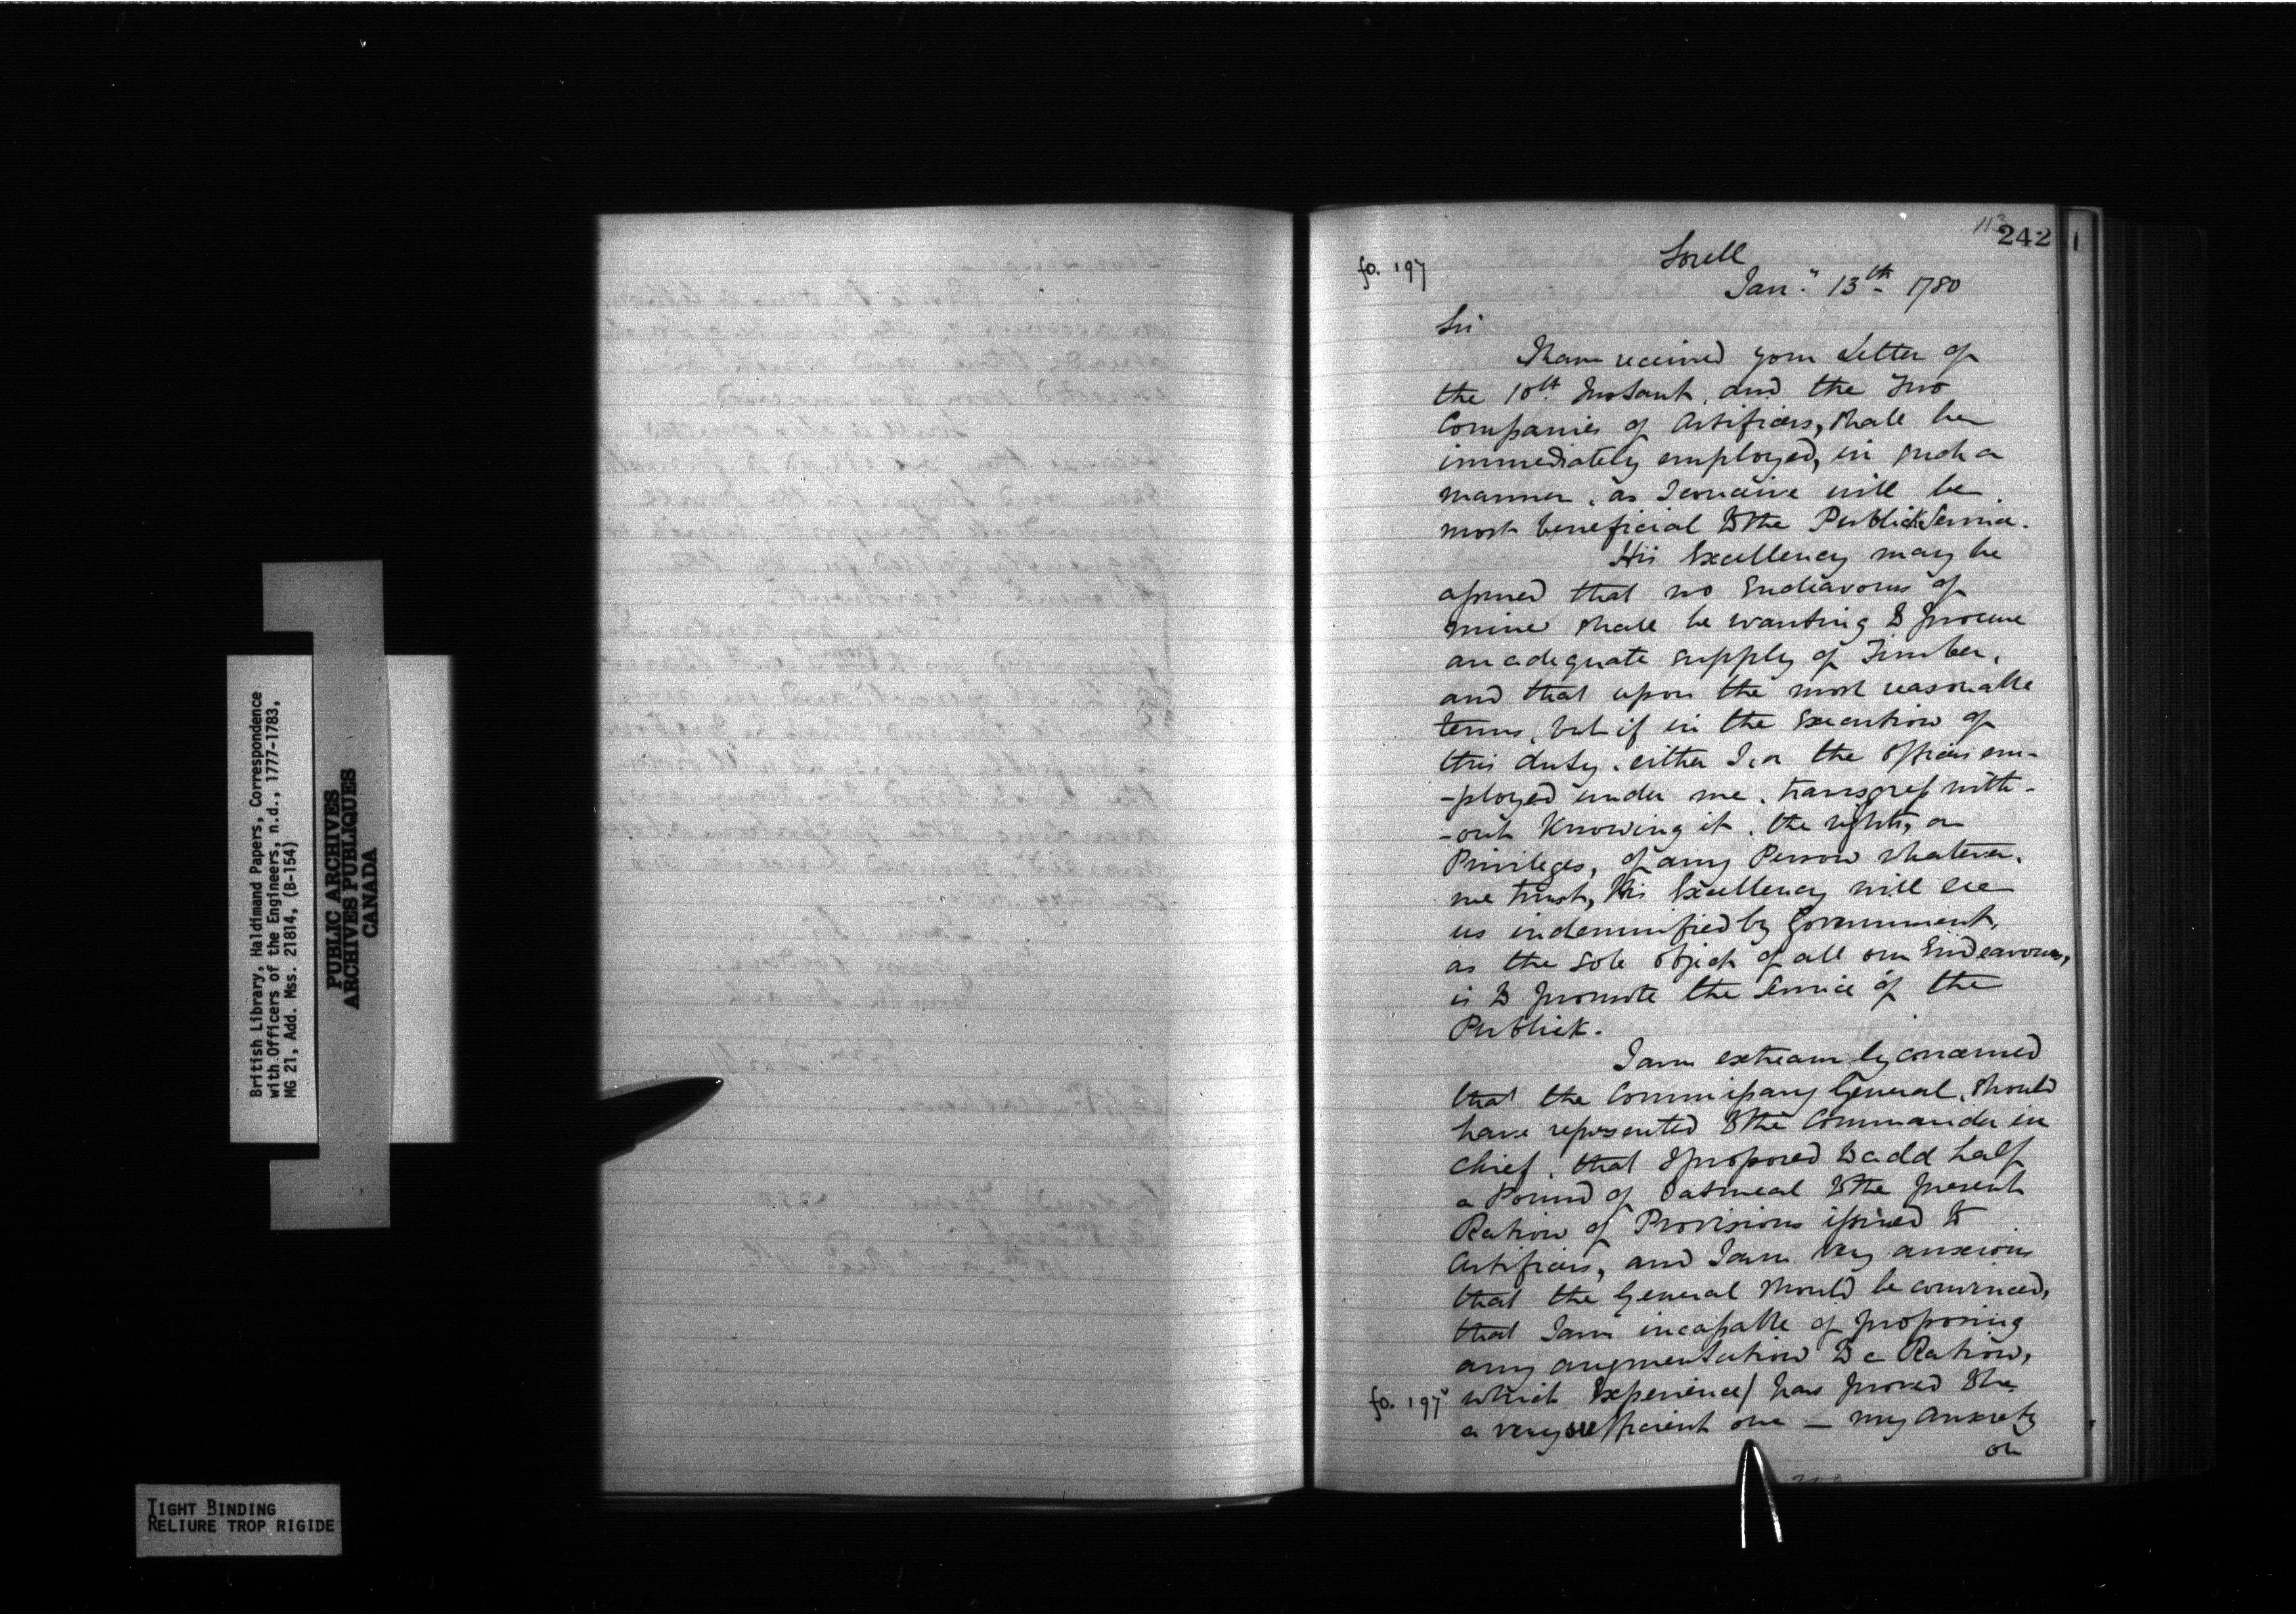 113
242
fo. 197
Sorell
Jan.y 13th 1780
Sir
I have received your Letter of
the 10th Instant, and the Two
Companies of Artificers, shall be
immediately employed, in such a
manner, as I conceive will be
most beneficial to the Publick Service.
His Excellency may be
assured that no Endeavours of
mine shall be wanting to procure
an adequate supply of Timber,
and that upon the most reasonable
terms, but if in the Execution of
this duty, either I, or the Officers em-
-ployed under me, transgress with-
-out Knowing it, the rights, or
Privileges, of any Person whatever,
we trust, His Excellency will see
us indemnified by Government,
as the sole object of all our Endeavours,
is to promote the Service of the
Publick.
I am extreamly concerned
that the Commissary General, should
have represented to the Commander in
Chief, that I proposed to add half
a Pound of Oatmeal to the present
Ration of Provisions issued to
Artificers, and I am very anxious
that the General should be convinced,
that I am incapable of proposing
any augmentation to a Ration,
fo. 197v which Experience/ has proved to be
a very sufficient one — my anxiety
on
British Library, Haldimand Papers, Correspondence
with Officers of the Engineers, n.d., 1777-1783,
MG 21, Add. Mss. 21814, (B-154)
PUBLIC ARCHIVES
ARCHIVES PUBLIQUES
CANADA
TIGHT BINDING
RELIURE TROP RIGIDE